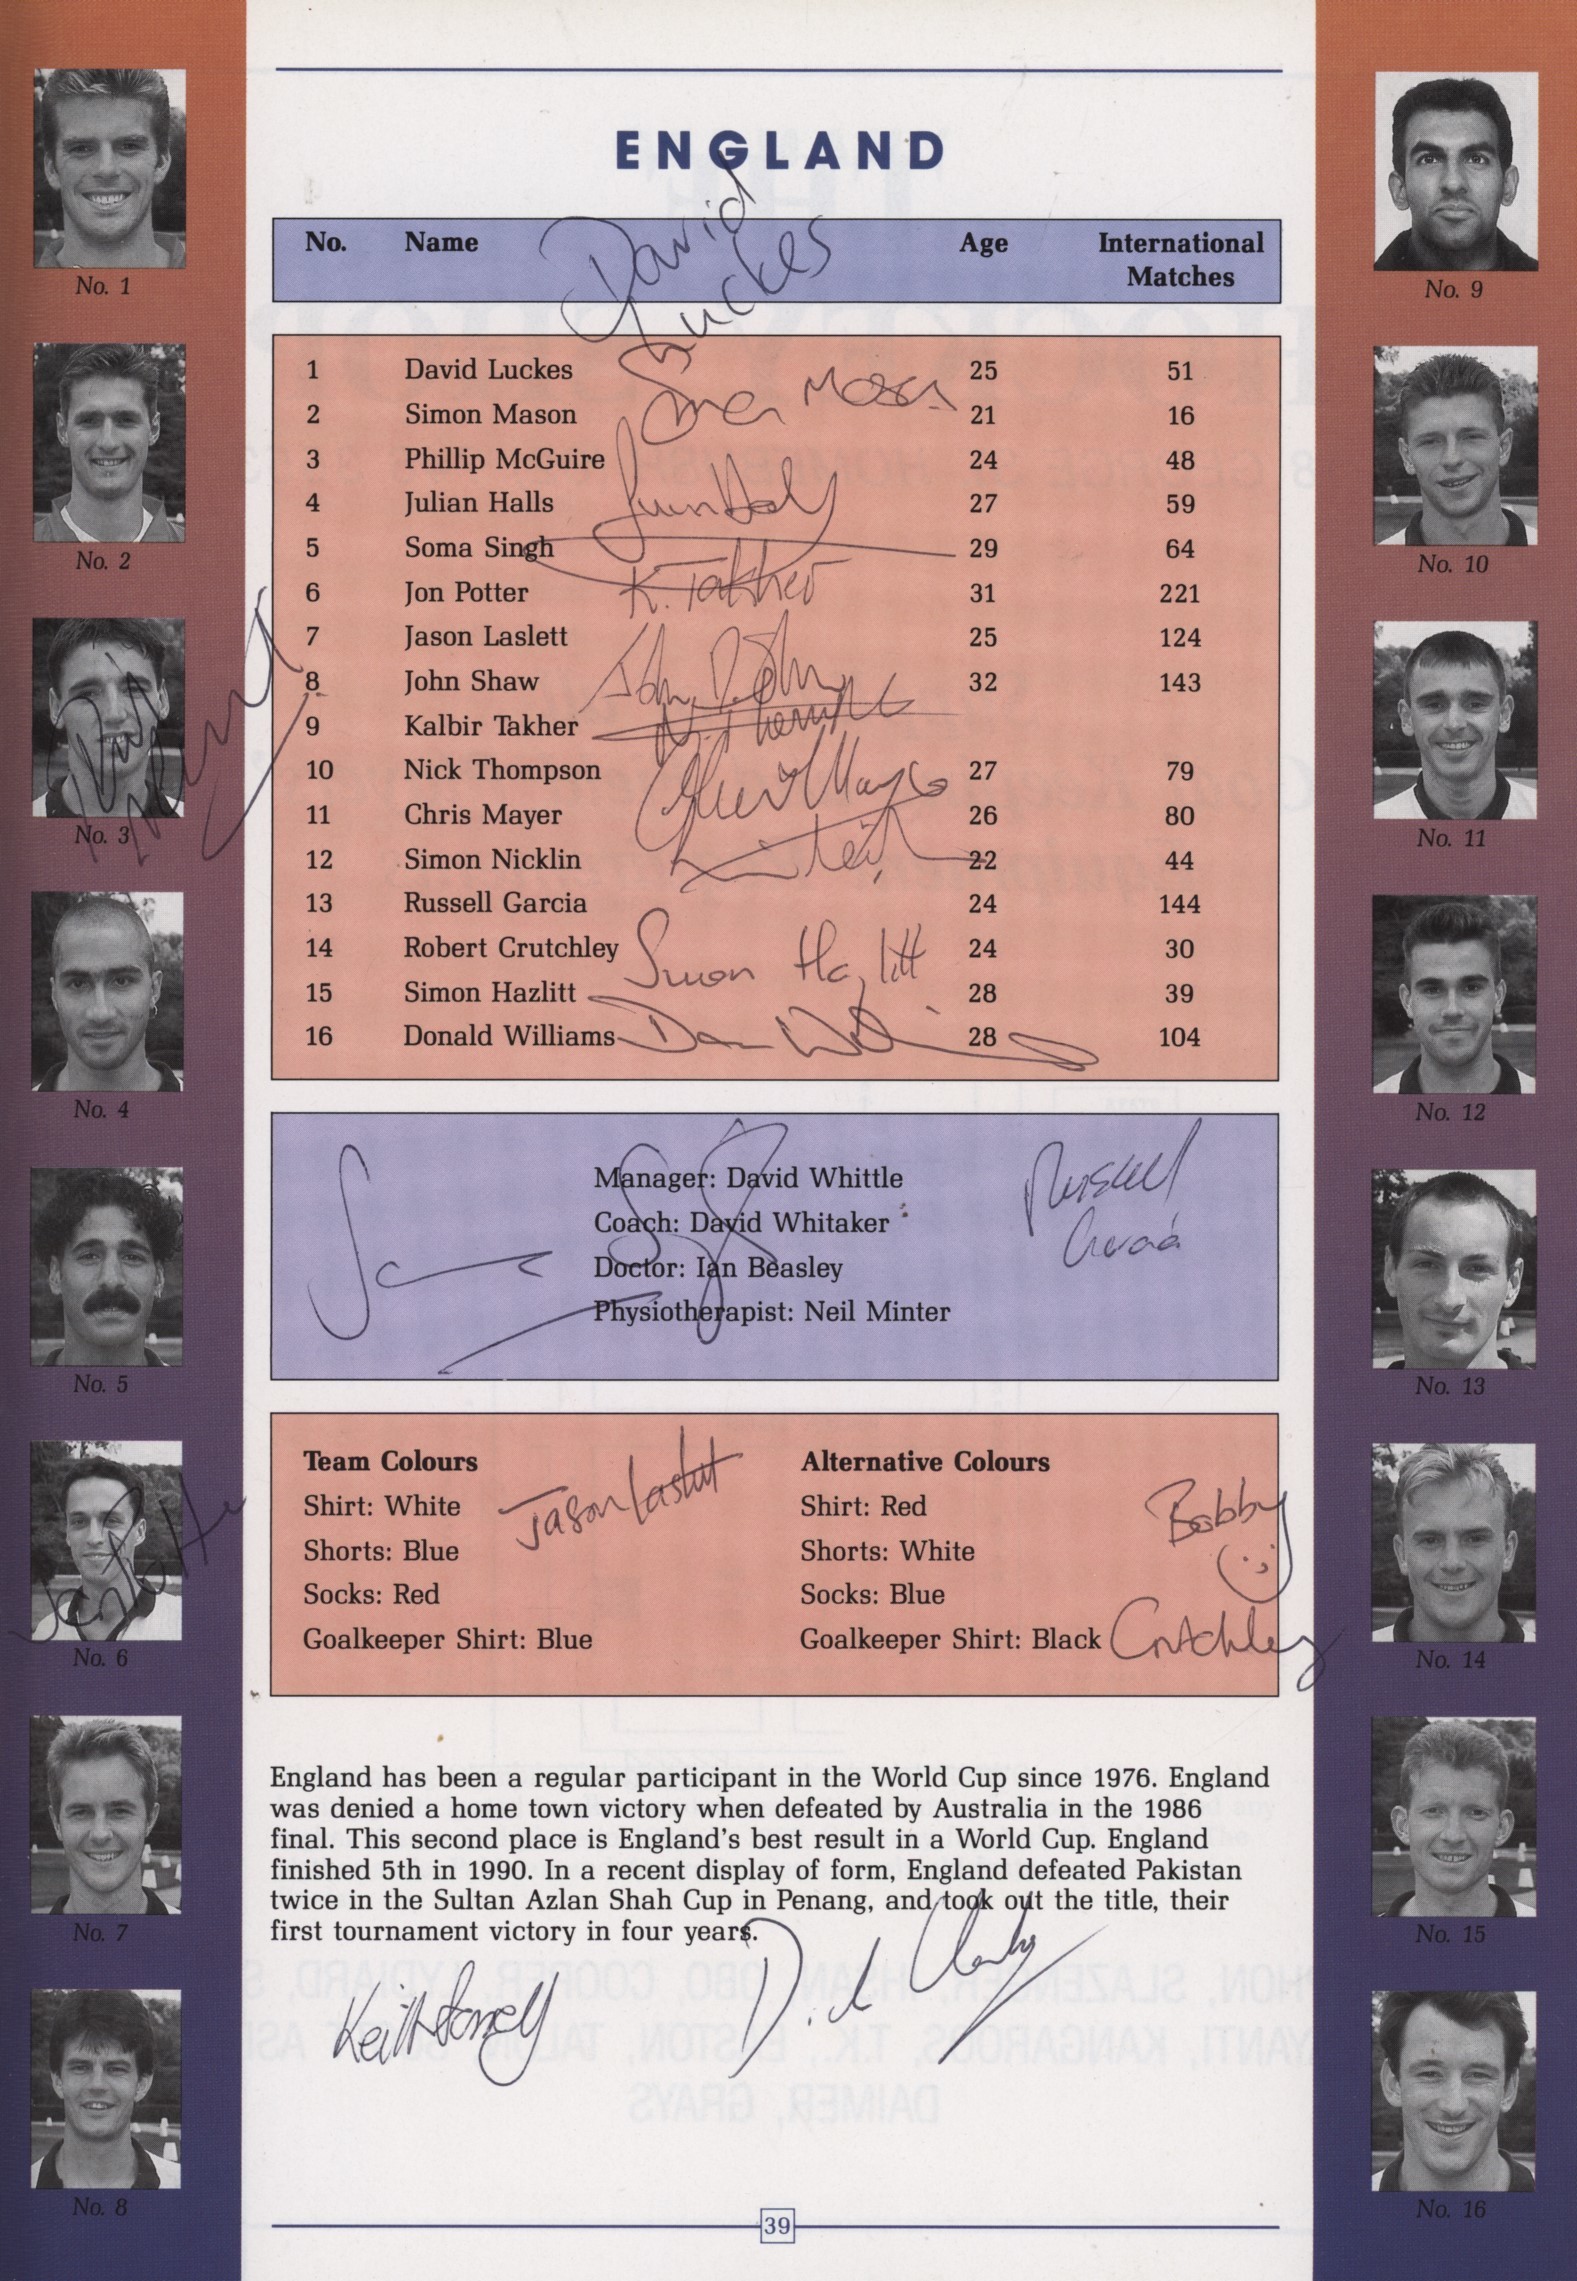 ENGLAND
No. Name Age International Matches
David Luckes
1 David Luckes 25 51
2 Simon Mason 21 16
3 Phillip McGuire 24 48
4 Julian Halls 27 59
5 Soma Singh 29 64
6 Jon Potter 31 221
7 Jason Laslett 25 124
8 John Shaw 32 143
9 Kalbir Takher
10 Nick Thompson 27 79
11 Chris Mayer 26 80
12 Simon Nicklin 22 44
13 Russell Garcia 24 144
14 Robert Crutchley 24 30
15 Simon Hazlitt 28 39
16 Donald Williams 28 104
K. Takher
Simon Hazlitt
Manager: David Whittle
Coach: David Whitaker
Doctor: Ian Beasley
Physiotherapist: Neil Minter
Russell
Garcia
Team Colours
Shirt: White
Shorts: Blue
Socks: Red
Goalkeeper Shirt: Blue
Jason Laslett
Alternative Colours
Shirt: Red
Shorts: White
Socks: Blue
Goalkeeper Shirt: Black
Bobby
Crutchley
England has been a regular participant in the World Cup since 1976. England
was denied a home town victory when defeated by Australia in the 1986
final. This second place is England's best result in a World Cup. England
finished 5th in 1990. In a recent display of form, England defeated Pakistan
twice in the Sultan Azlan Shah Cup in Penang, and took out the title, their
first tournament victory in four years.
39
No. 1
No. 2
No. 3
No. 4
No. 5
No. 6
No. 7
No. 8
No. 9
No. 10
No. 11
No. 12
No. 13
No. 14
No. 15
No. 16